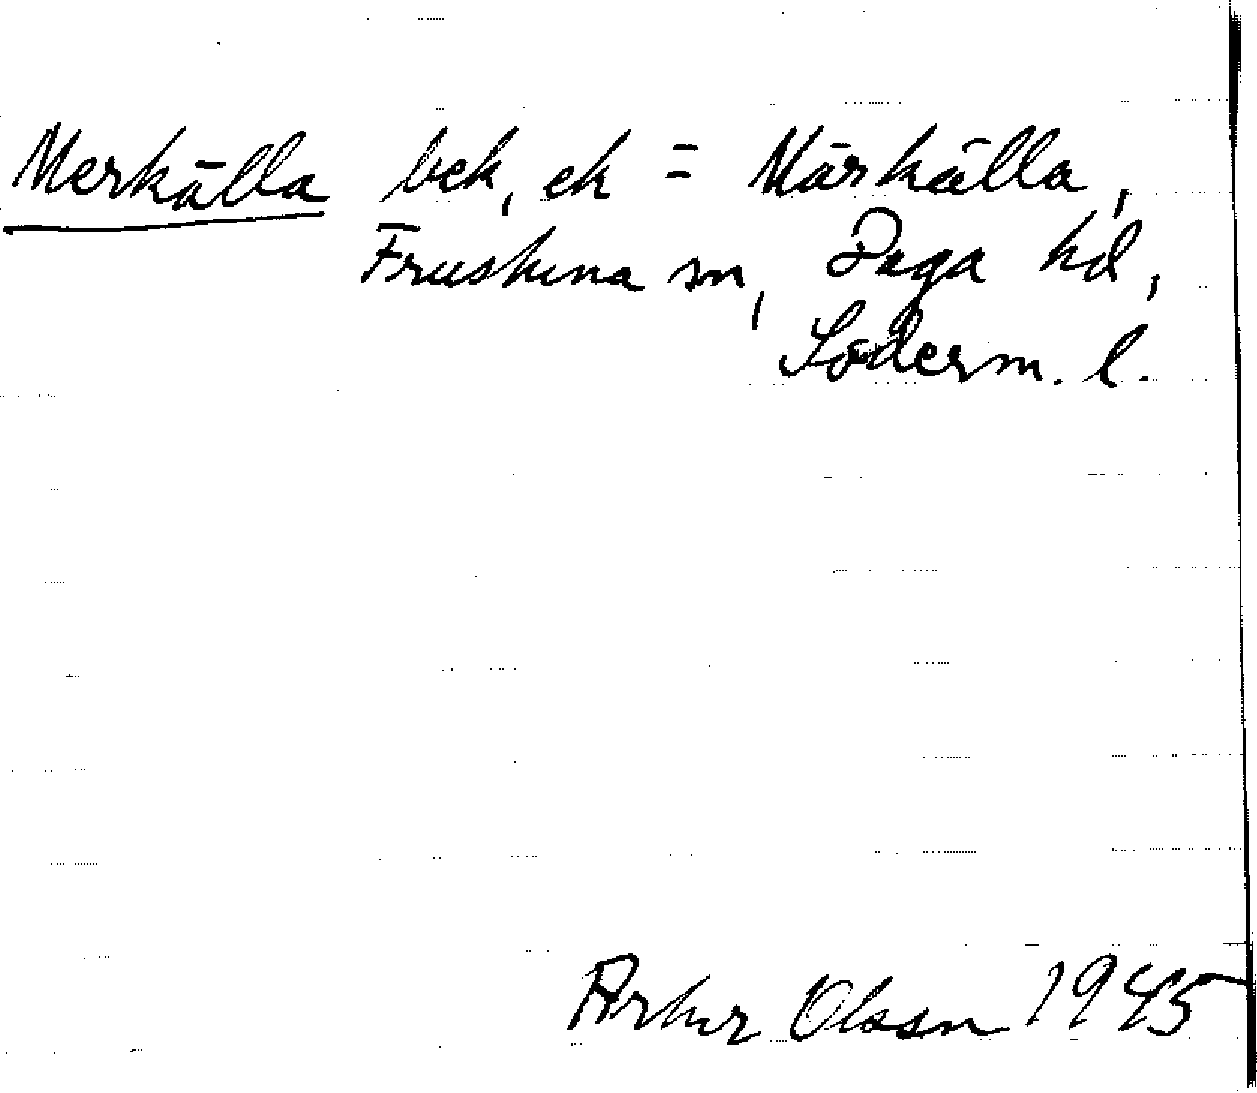 Merkälla bek, ek = Märkälla,
Frustuna sn, Daga hd,
Söderm. l.
Artur Olsson 1945